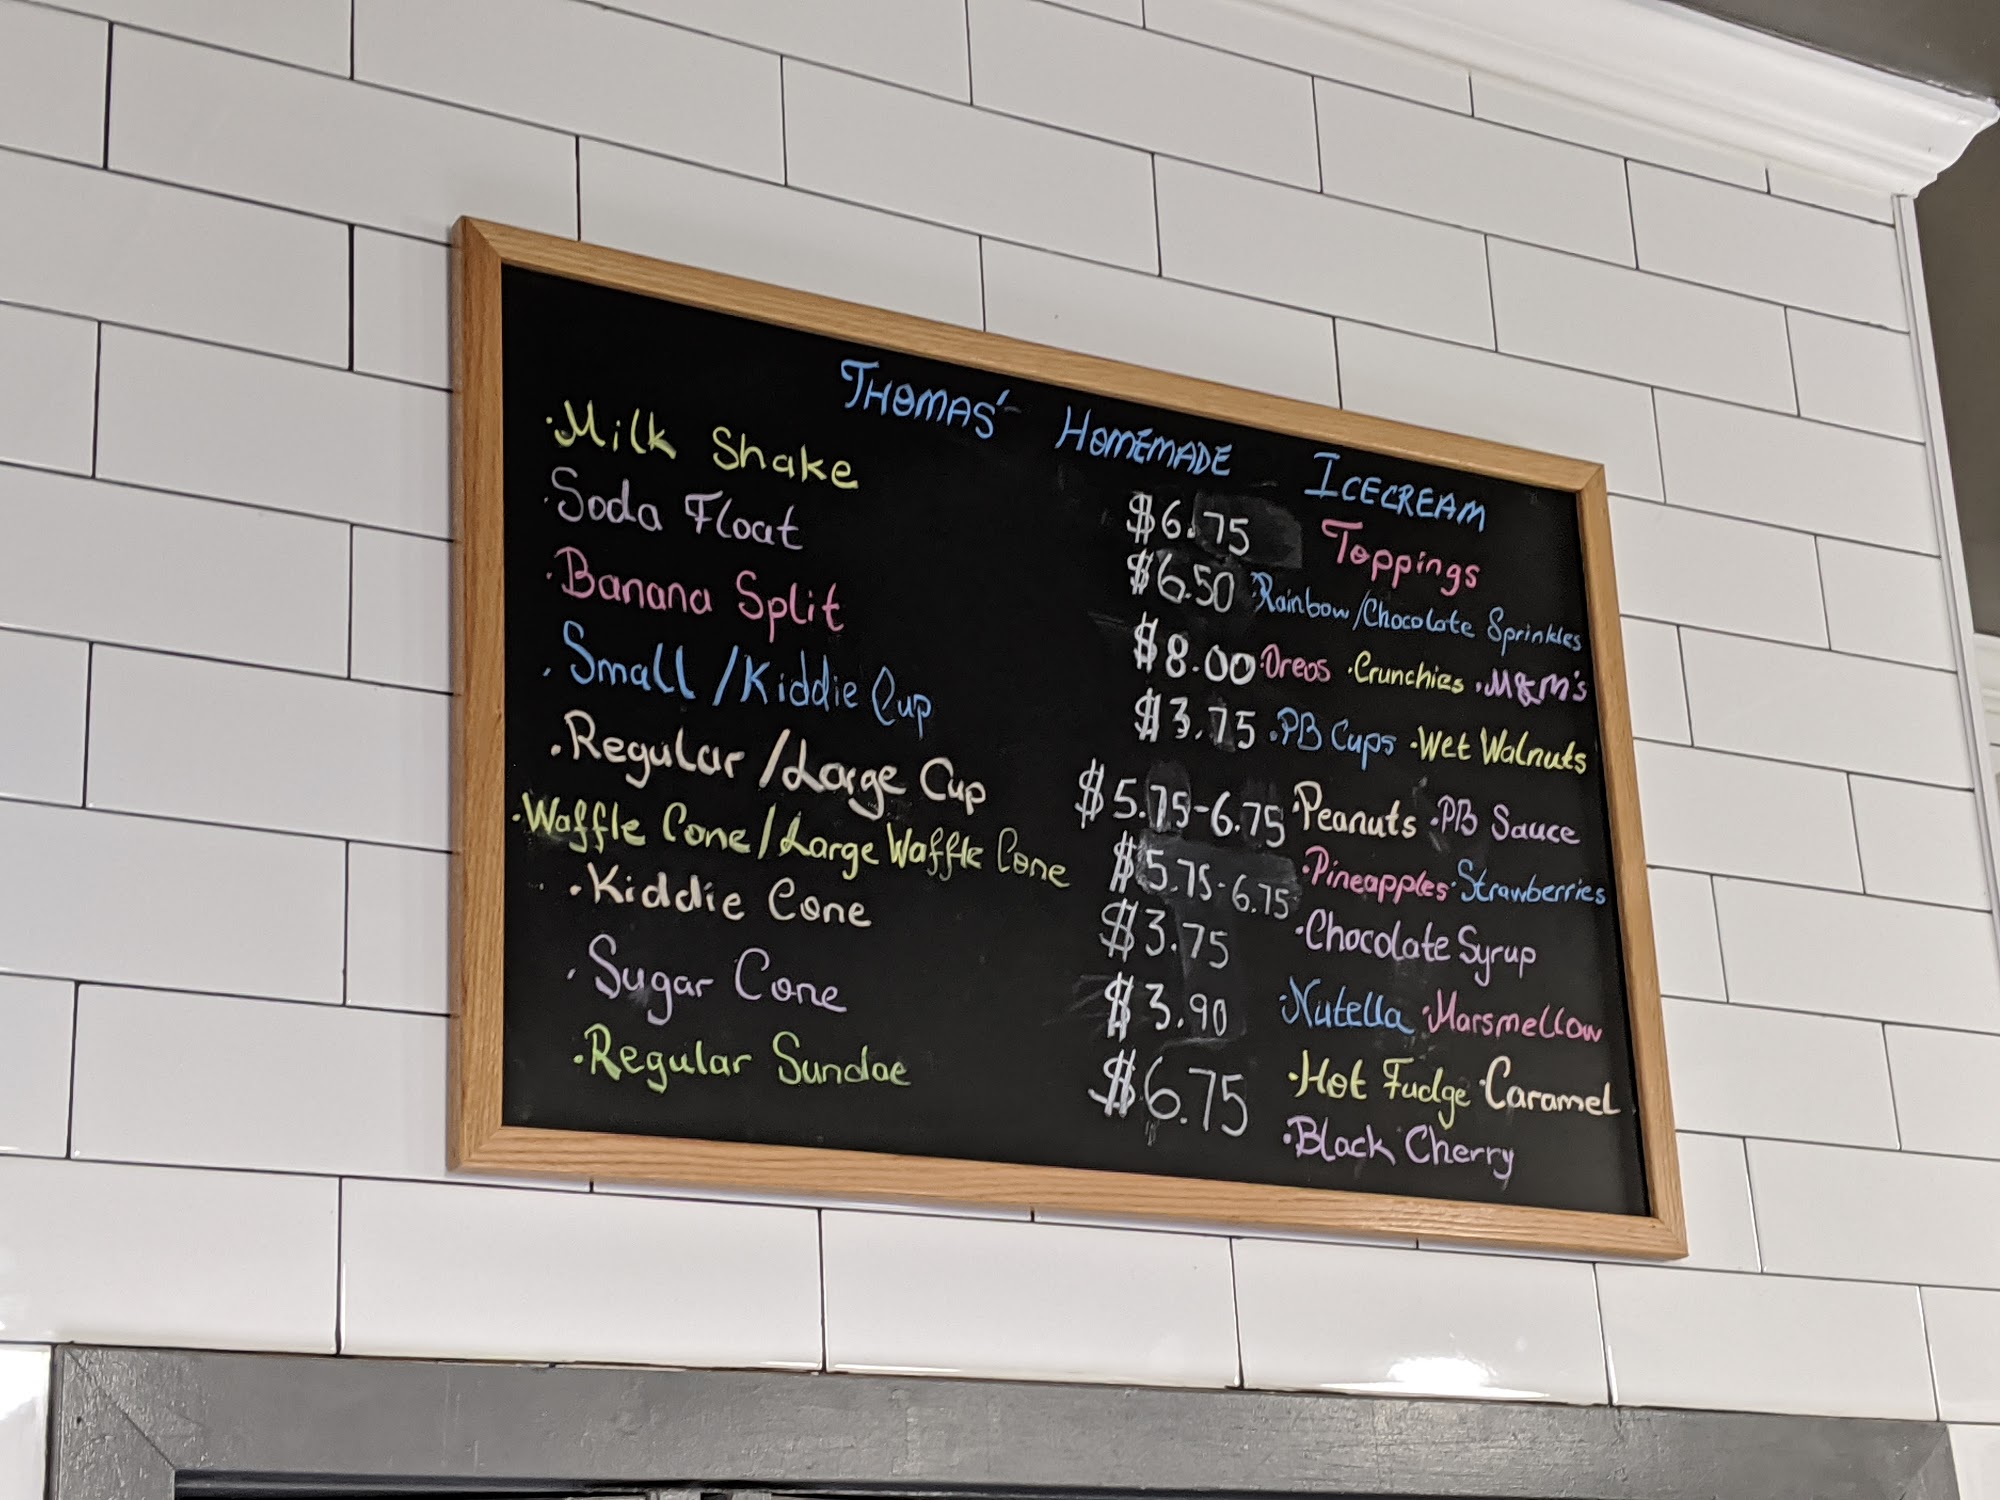 THOMAS' HOMEMADE ICECREAM
·Milk Shake $6.75
·Soda Float $6.50
·Banana Split $8.00
·Small/Kiddie Cup $3.75
·Regular/Large Cup $5.75-6.75
·Waffle Cone/Large Waffle Cone $5.75-6.75
·Kiddie Cone $3.75
·Sugar Cone $3.90
·Regular Sundae $6.75
Toppings
·Rainbow/Chocolate Sprinkles
·Oreos ·Crunchies ·M&M's
·PB Cups ·Wet Walnuts
·Peanuts ·PB Sauce
·Pineapples ·Strawberries
·Chocolate Syrup
·Nutella ·Marsmellow
·Hot Fudge ·Caramel
·Black Cherry